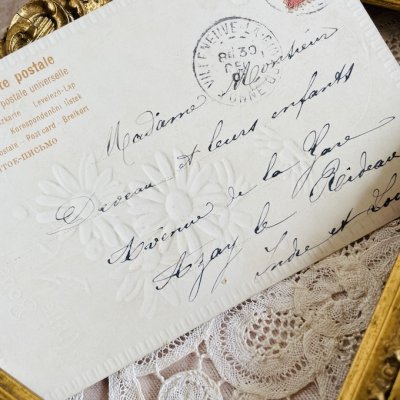 rte postale
postale universelle
zkarte - Levelező-Lap
Korrespondenční lístek
Postale - Post card - Breikort
ЫТОЕ-ПИСЬМО
VILLENEUVE-LA-GU
30
YONNE
Madame Monsieur
Deveau et leurs enfants
Avenue de la Gare
Azay le Rideau
Indre et Loi